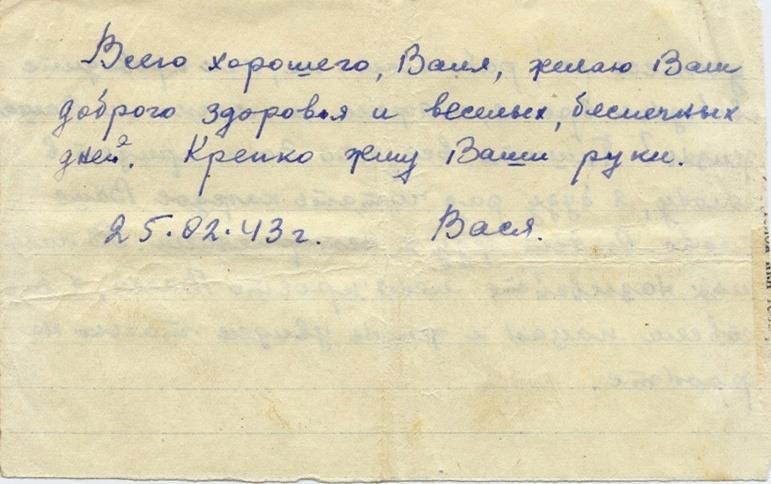 Всего хорошего, Валя, желаю Вам
доброго здоровья и веселых, беспечных
дней. Крепко жму Ваши руки.
25.02.43 г. Вася.